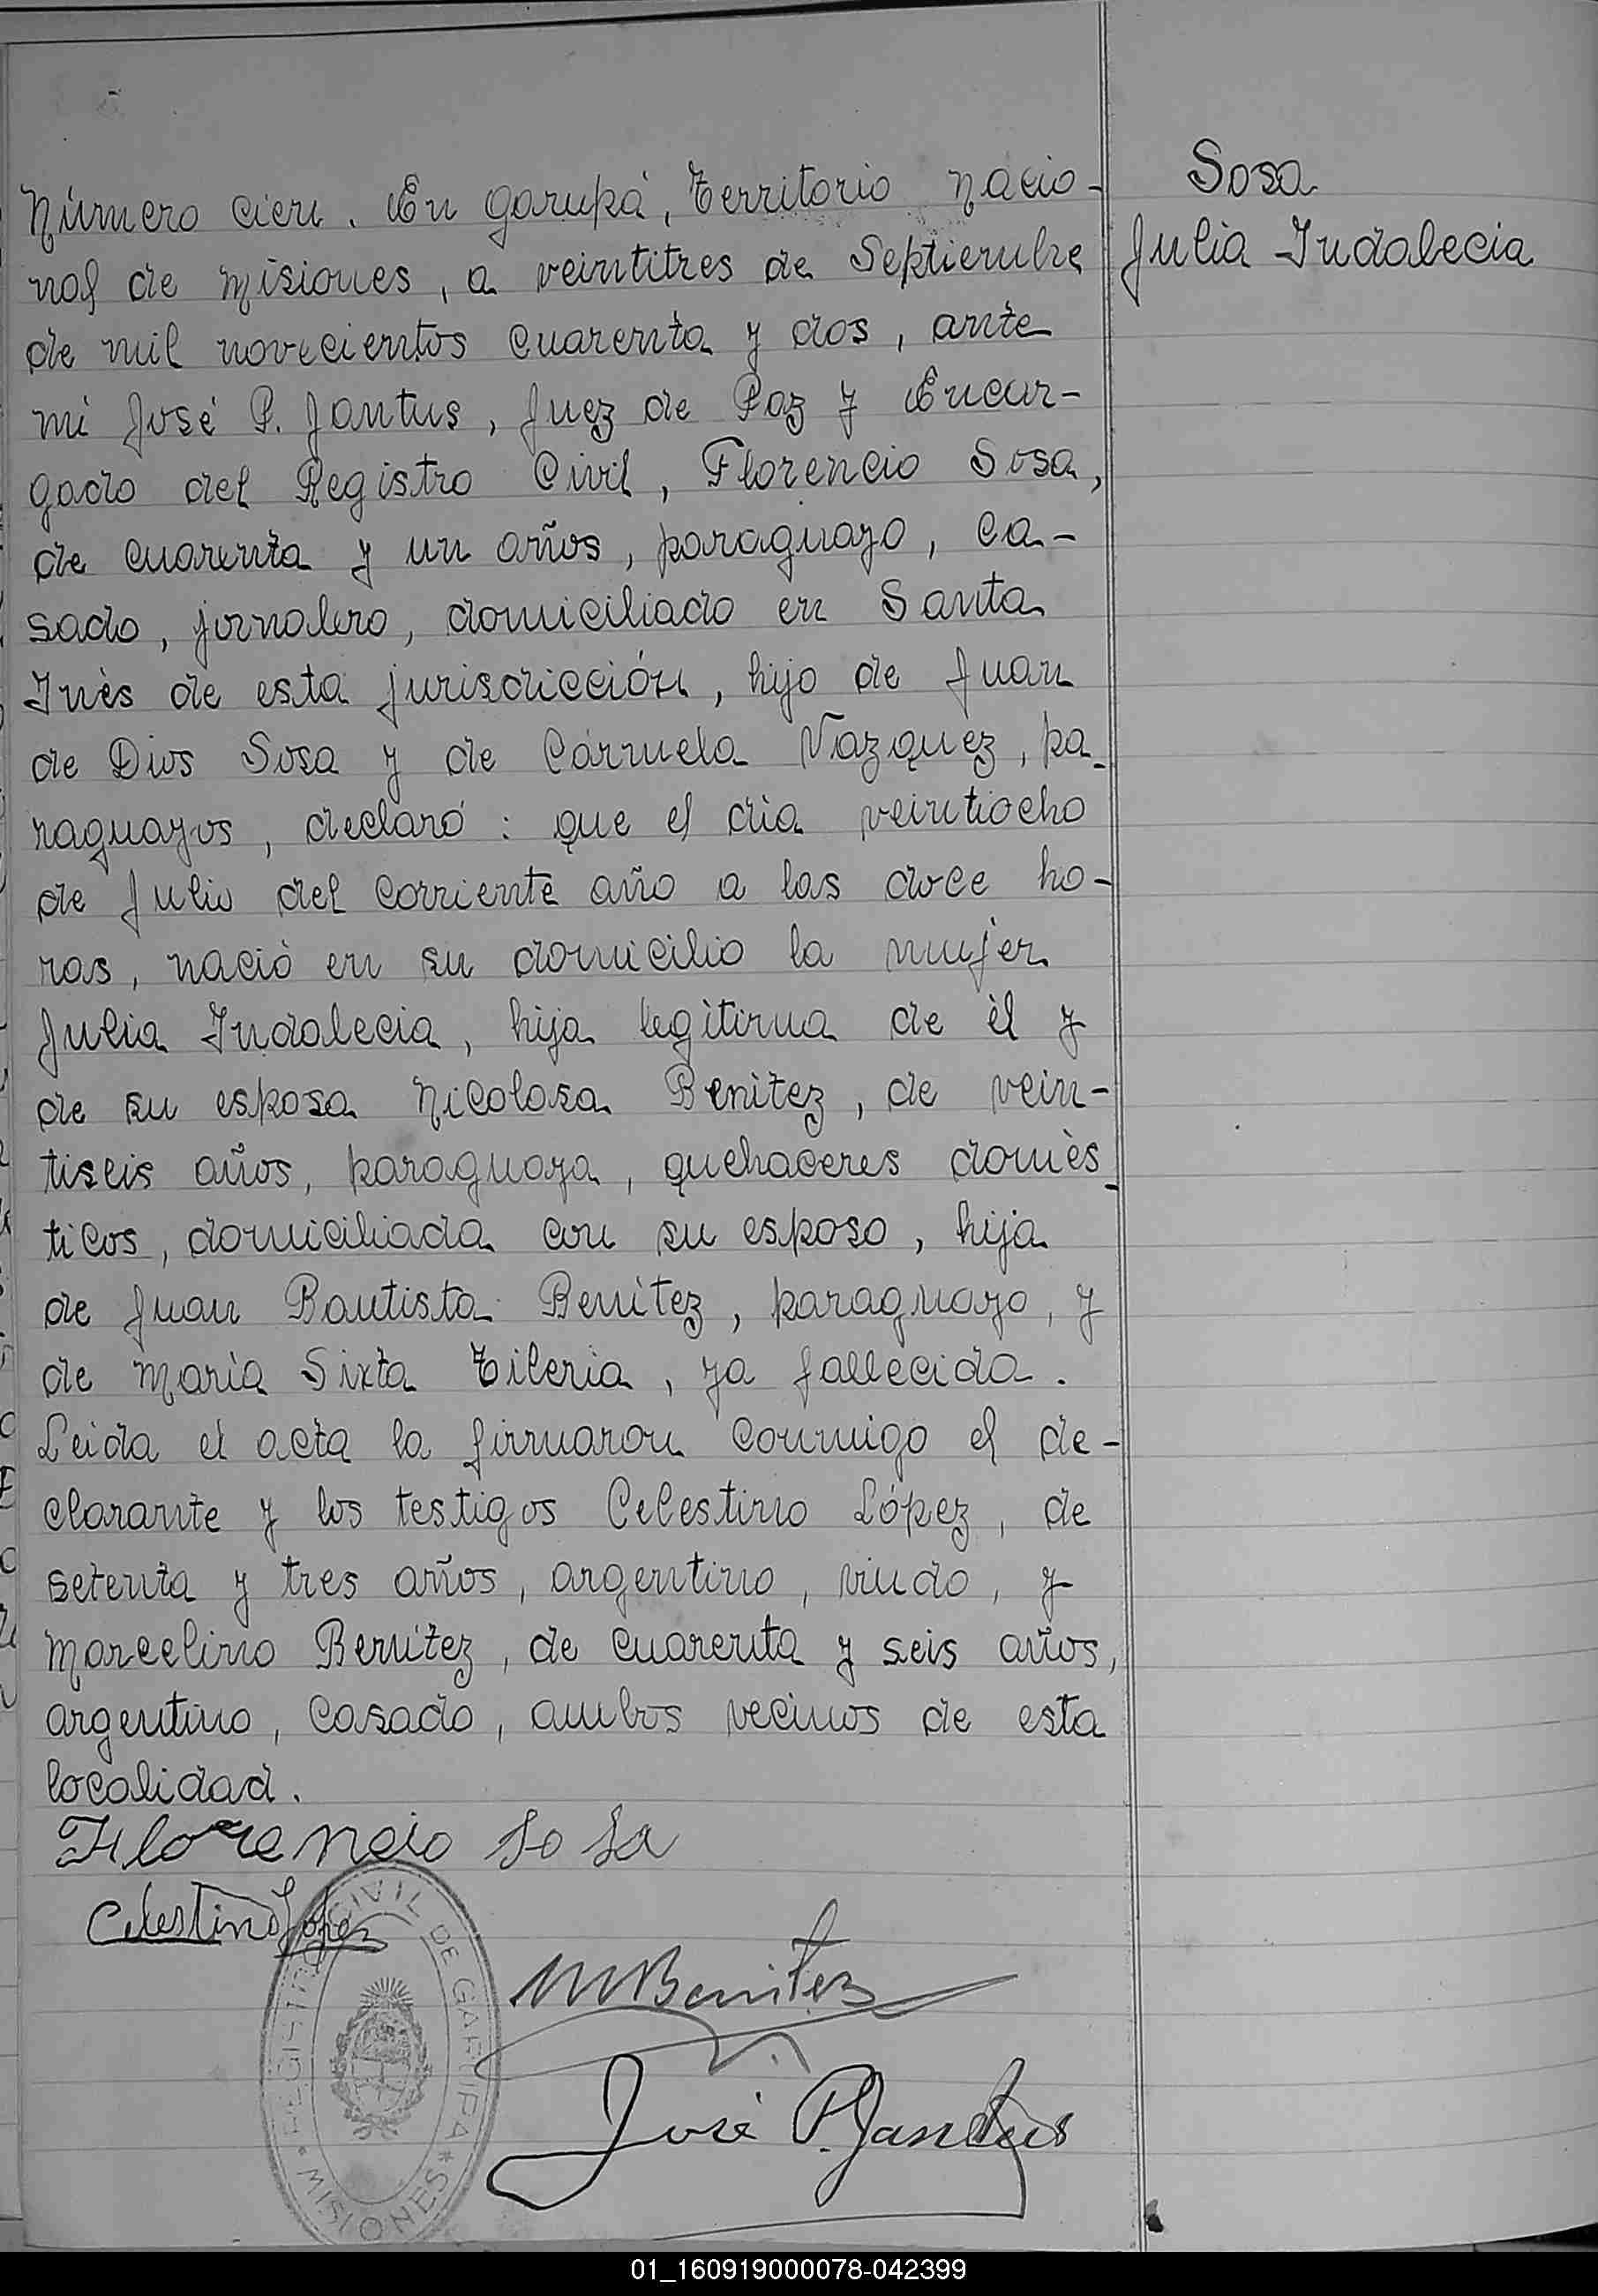 Sosa
Julia Indalecia
Número cien. En Garupá, Territorio Nacio-
nal de Misiones, a veintitres de Septiembre
de mil novecientos cuarenta y dos, ante
mi José P. Jantus, Juez de Paz y Encar-
gado del Registro Civil, Florencio Sosa,
de cuarenta y un años, paraguayo, ca-
sado, jornalero, domiciliado en Santa
Inès de esta jurisdicción, hijo de Juan
de Dios Sosa y de Cármela Vazquez, pa-
raguayos, declaró: que el dia veintiocho
de Julio del corriente año a las doce ho-
ras, nació en su domicilio la mujer
Julia Indalecia, hija legitima de èl y
de su esposa Nicolasa Benitez, de vein-
tiseis años, paraguaya, quehaceres domès-
ticos, domiciliada con su esposo, hija
de Juan Bautista Benitez, paraguayo, y
de Marìa Sixta Tileria, ya fallecida.
Leida el acta la firmaron conmigo el de-
clarante y los testigos Celestino López, de
setenta y tres años, argentino, viudo, y
Marcelino Benitez, de cuarenta y seis años,
argentino, casado, ambos vecinos de esta
localidad.
Florencio Sosa
Celestino López
M Benitez
José P. Jantus
REGISTRO CIVIL DE GARUPA * MISIONES *
01_160919000078-042399